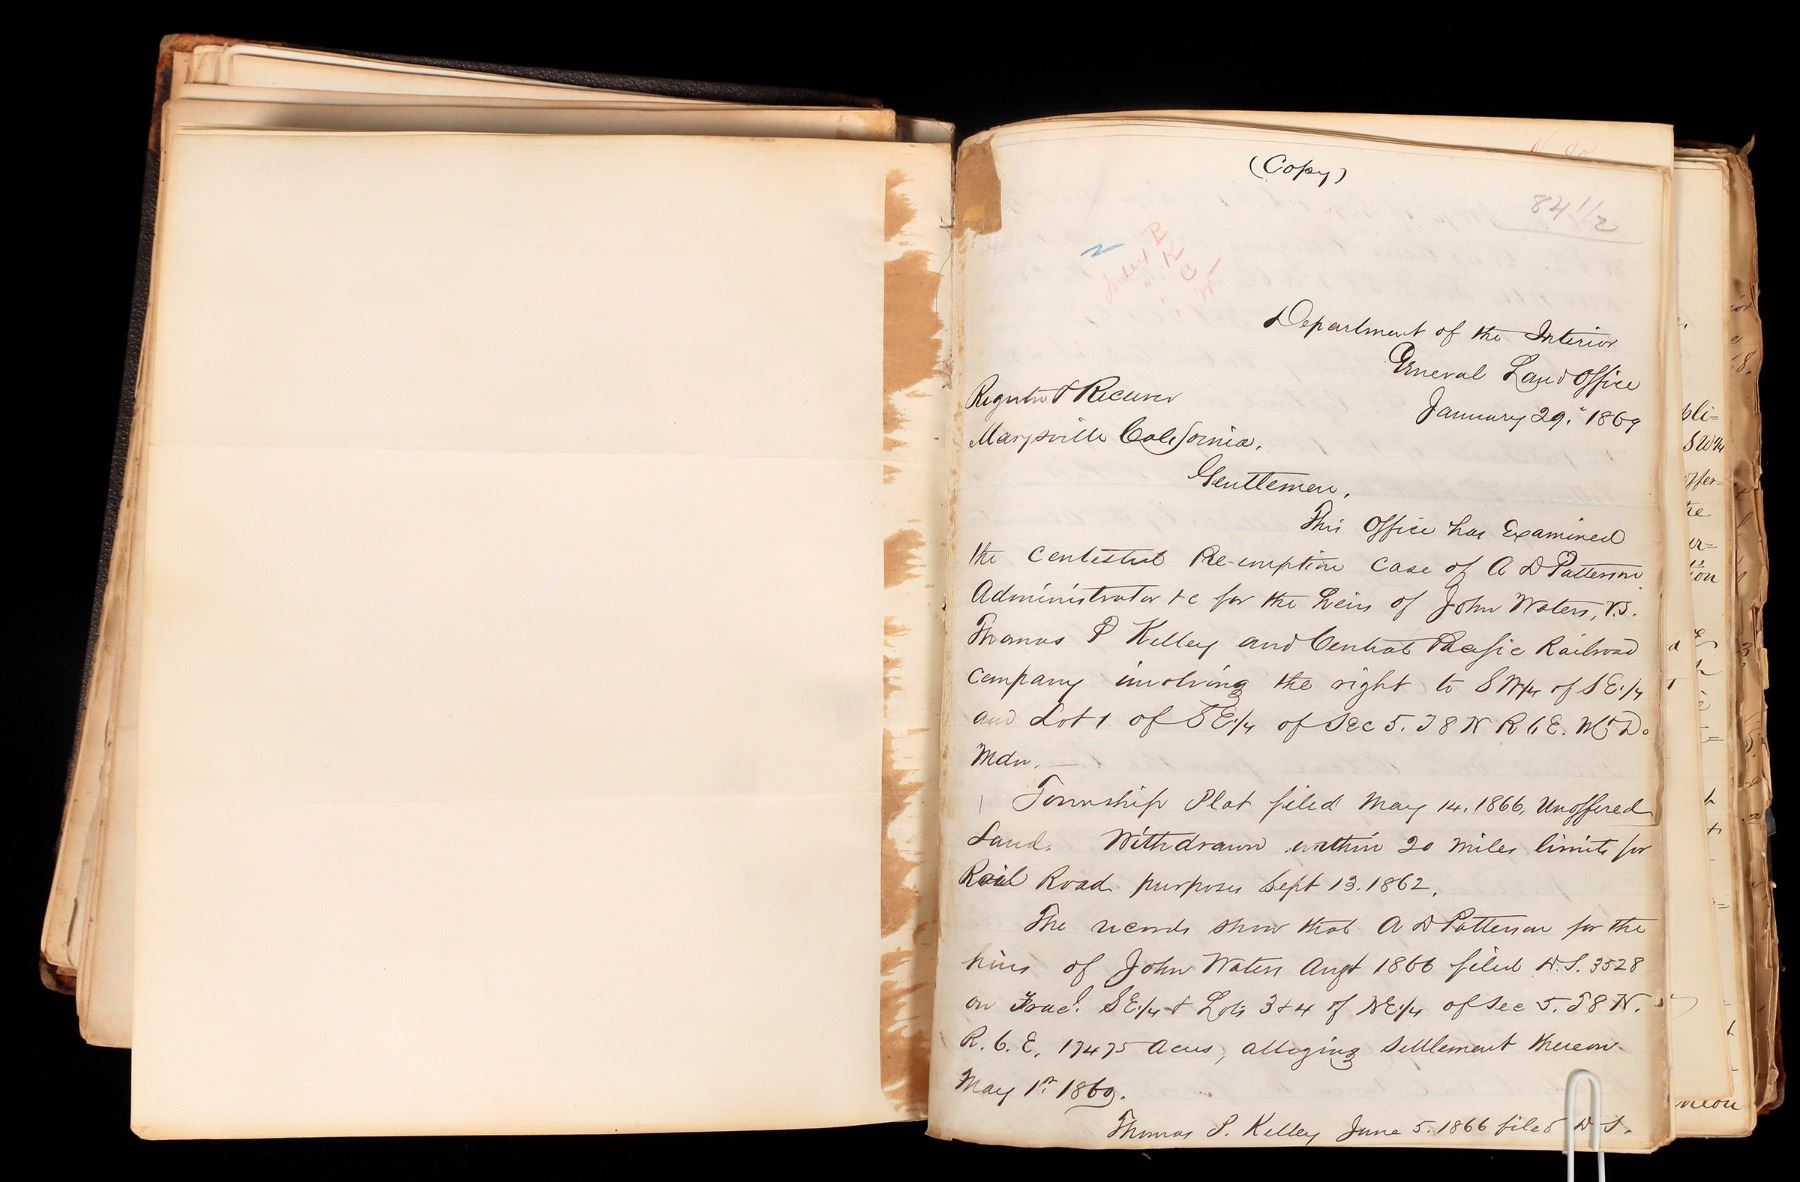 (Copy)
84 1/2
Department of the Interior
General Land Office
January 29. 1869
Register & Receiver
Marysville California.
Gentlemen,
This Office has Examined
the contested Pre-emption case of A D Patterson
Administrator &c for the heirs of John Waters, vs.
Thomas P Kelley and Central Pacific Railroad
company involving the right to S W1/4 of S E.1/4
and Lot 1 of S E1/4 of Sec 5. T 8 N R 6 E. Mt D.
Mdn.
Township Plat filed May 14. 1866, Unoffered
Land. Withdrawn within 20 miles limits for
Rail Road purposes Sept 13. 1862.
The records show that A D Patterson for the
heirs of John Waters Augt 1866 filed D.S. 3528
on Fracl. S E1/4 & Lots 3 & 4 of N E.1/4 of Sec 5. T 8 N.
R. 6. E. 174 75 acres, alleging settlement thereon
May 1st
Thomas P. Kelley June 5. 1866 filed D. S.